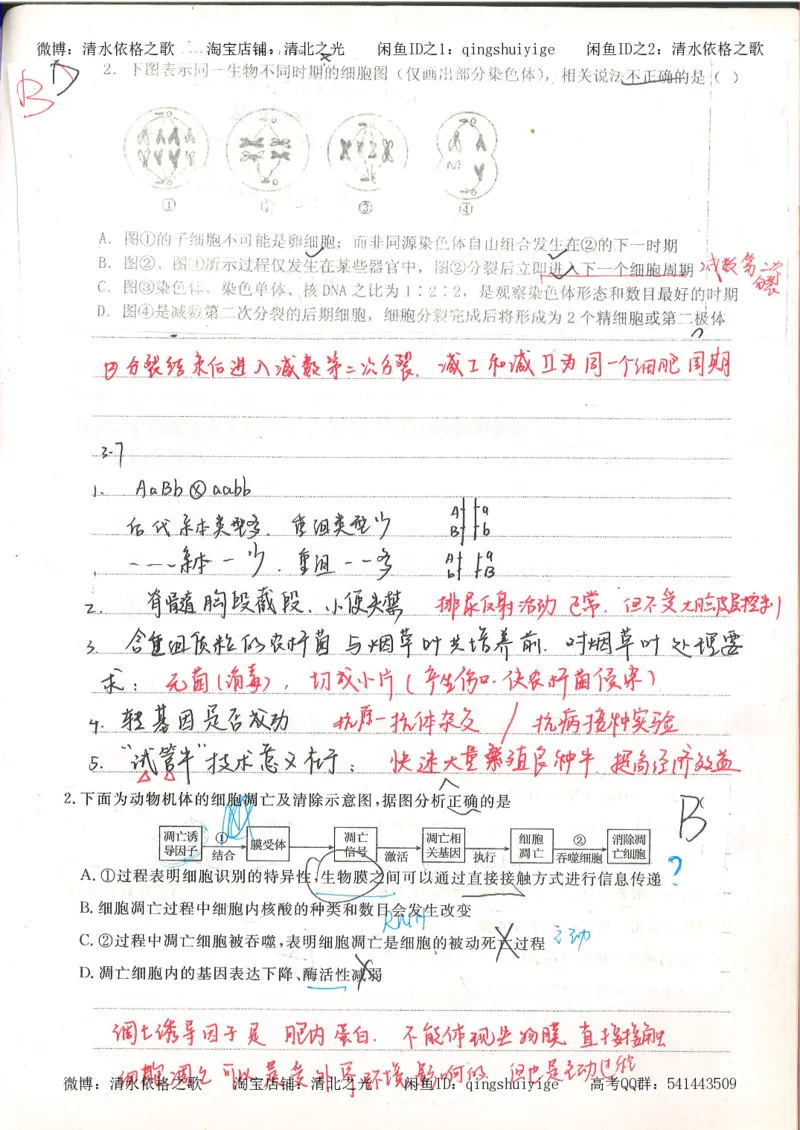 微博：清水依格之歌 淘宝店铺：清北之光 闲鱼ID之1：qingshuiyige 闲鱼ID之2：清水依格之歌
B D
2．下图表示同一生物不同时期的细胞图（仅画出部分染色体），相关说法不正确的是（ ）
① ② ③ ④
A．图①的子细胞不可能是卵细胞；而非同源染色体自由组合发生在②的下一时期
B．图②、图①所示过程仅发生在某些器官中，图②分裂后立即进入下一个细胞周期 减数第二次分裂
C．图③染色体、染色单体、核DNA之比为1∶2∶2，是观察染色体形态和数目最好的时期
D．图④是减数第二次分裂的后期细胞，细胞分裂完成后将形成为2个精细胞或第二极体
B 分裂结束后进入减数第二次分裂．减Ⅰ和减Ⅱ为同一个细胞周期
3-7
1. AaBb ⊗ aabb
后代亲本类型多．重组类型少
A a
B b
---亲本一少．重组--多
A a
b B
2. 脊髓胸段截段．小便失禁 排尿反射活动正常．但不受大脑皮层控制
3. 含重组质粒的农杆菌与烟草叶共培养前．对烟草叶处理要
求：无菌(消毒)，切成小片(产生伤口．使农杆菌侵染)
4. 转基因是否成功 抗原-抗体杂交 / 抗病接种实验
5. “试管牛”技术意义在于：快速大量繁殖良种牛．提高经济效益
2.下面为动物机体的细胞凋亡及清除示意图,据图分析正确的是 B
凋亡诱导因子 ① 结合 膜受体 凋亡信号 激活 凋亡相关基因 执行 细胞凋亡 ② 吞噬细胞 消除凋亡细胞
A.①过程表明细胞识别的特异性,生物膜之间可以通过直接接触方式进行信息传递 ?
B.细胞凋亡过程中细胞内核酸的种类和数目会发生改变
RNA
C.②过程中凋亡细胞被吞噬,表明细胞凋亡是细胞的被动死亡过程 主动
D.凋亡细胞内的基因表达下降、酶活性减弱
凋亡诱导因子是 胞内蛋白．不能体现生物膜直接接触
细胞凋亡可以是受外界环境影响的．但也是主动过程
微博：清水依格之歌 淘宝店铺：清北之光 闲鱼ID：qingshuiyige 高考QQ群：541443509